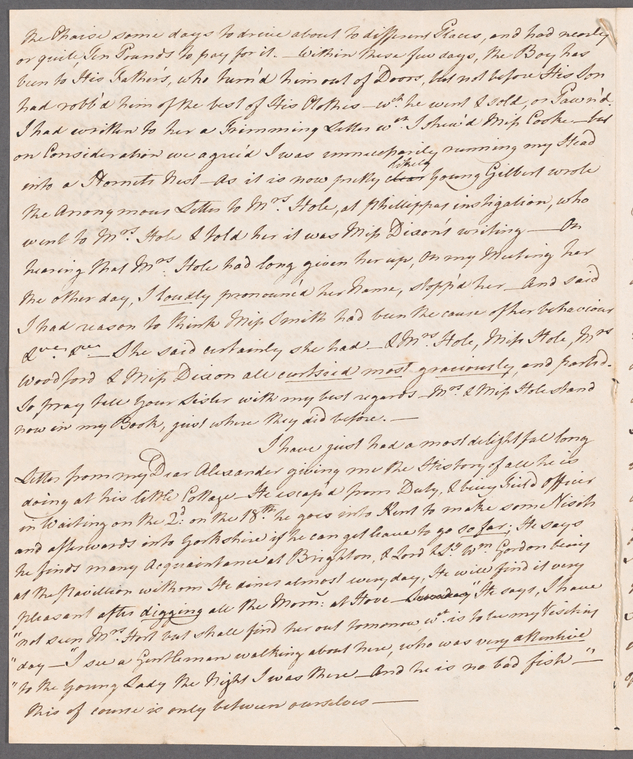 the Chaise some days to drive about to different Places, and had nearly
or quite Ten Pounds to pay for it. — Within these few days, the Boy has
been to His Fathers, who turn'd him out of Doors, but not before His Son
had robb'd him of the best of His Clothes — wch he went & sold, or Pawn'd.
I had written to her a Trimming Letter wch I shew'd Miss Cooke — but
on Consideration we agree'd I was unnecessarily running my Head
into a Hornets Nest — As it is now pretty clear likely Young Gilbert wrote
the Anonymous Letter to Mrs. Hole, at Phillippas instigation, who
went to Mrs. Hole & told her it was Miss Dixon's writing — On
hearing that Mrs. Hole had long given her up, on my Meeting her
the other day, I loudly pronounc'd her Name, stopp'd her — And said
I had reason to think Miss Smith had been the cause of her behaviour
&ca. &ca. — She said certainly she had — & Mrs Hole, Miss Hole, Mrs
Woodford & Miss Dixon all curtsied most graciously and parted.
So pray tell Your Sister with my best regards — Mrs. & Miss Hole stand
now in my Book, just where they did before. —
I have just had a most delightful long
Letter from my Dear Alexander giving me the History of all he is
doing at his little Cottage — He escap'd from Duty, & being Field Officer
in Waiting on the 2d: on the 18th he goes into Kent to make some Visits
and afterwards into Yorkshire if he can get leave to go so far; He says
he finds many Acquaintance at Brighton, & Lord & Ly Wm Gordon being
at the Pavillion with whom He dines almost every day, He will find it very
pleasant after digging all the Morng. at Hove — "He says, I have
"not seen Mrs. Hort but shall find her out tomorow wch is to be my Visiting
"day — "I see a Gentleman walking about here, who was very attentive
"to the Young Lady the Night I was there — And he is no bad fish — "
this of course is only between ourselves —